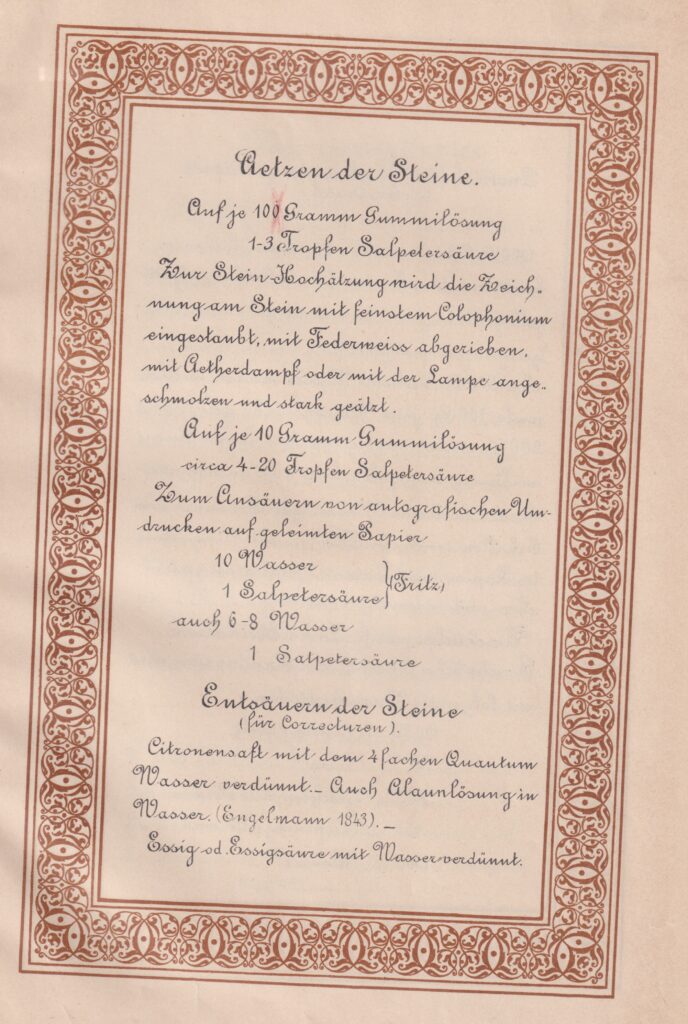 Aetzen der Steine.
Auf je 100 Gramm Gummilösung
1-3 Tropfen Salpetersäure
Zur Stein-Hochätzung wird die Zeich-
nung am Stein mit feinstem Colophonium
eingestaubt, mit Federweiss abgerieben,
mit Aetherdampf oder mit der Lampe ange-
schmolzen und stark geätzt.
Auf je 10 Gramm Gummilösung
circa 4-20 Tropfen Salpetersäure
Zum Ansäuern von autografischen Um-
drucken auf geleimten Papier
10 Wasser
1 Salpetersäure } (Fritz)
auch 6-8 Wasser
1 Salpetersäure
Entsäuern der Steine
(für Correcturen).
Citronensaft mit dem 4fachen Quantum
Wasser verdünnt.- Auch Alaunlösung in
Wasser. (Engelmann 1843). -
Essig od. Essigsäure mit Wasser verdünnt.